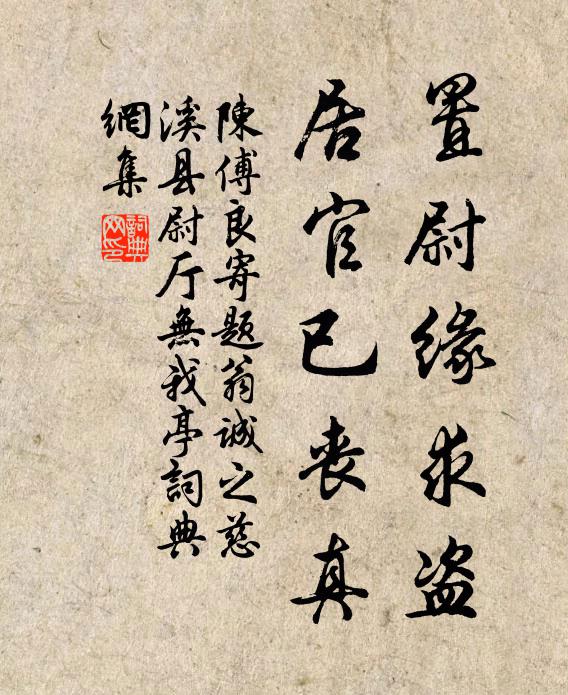 置尉缘求盗
居官已丧真
陳傅良寄题翁诚之慈
溪县尉厅無我亭詞典
網集
詞典
网印